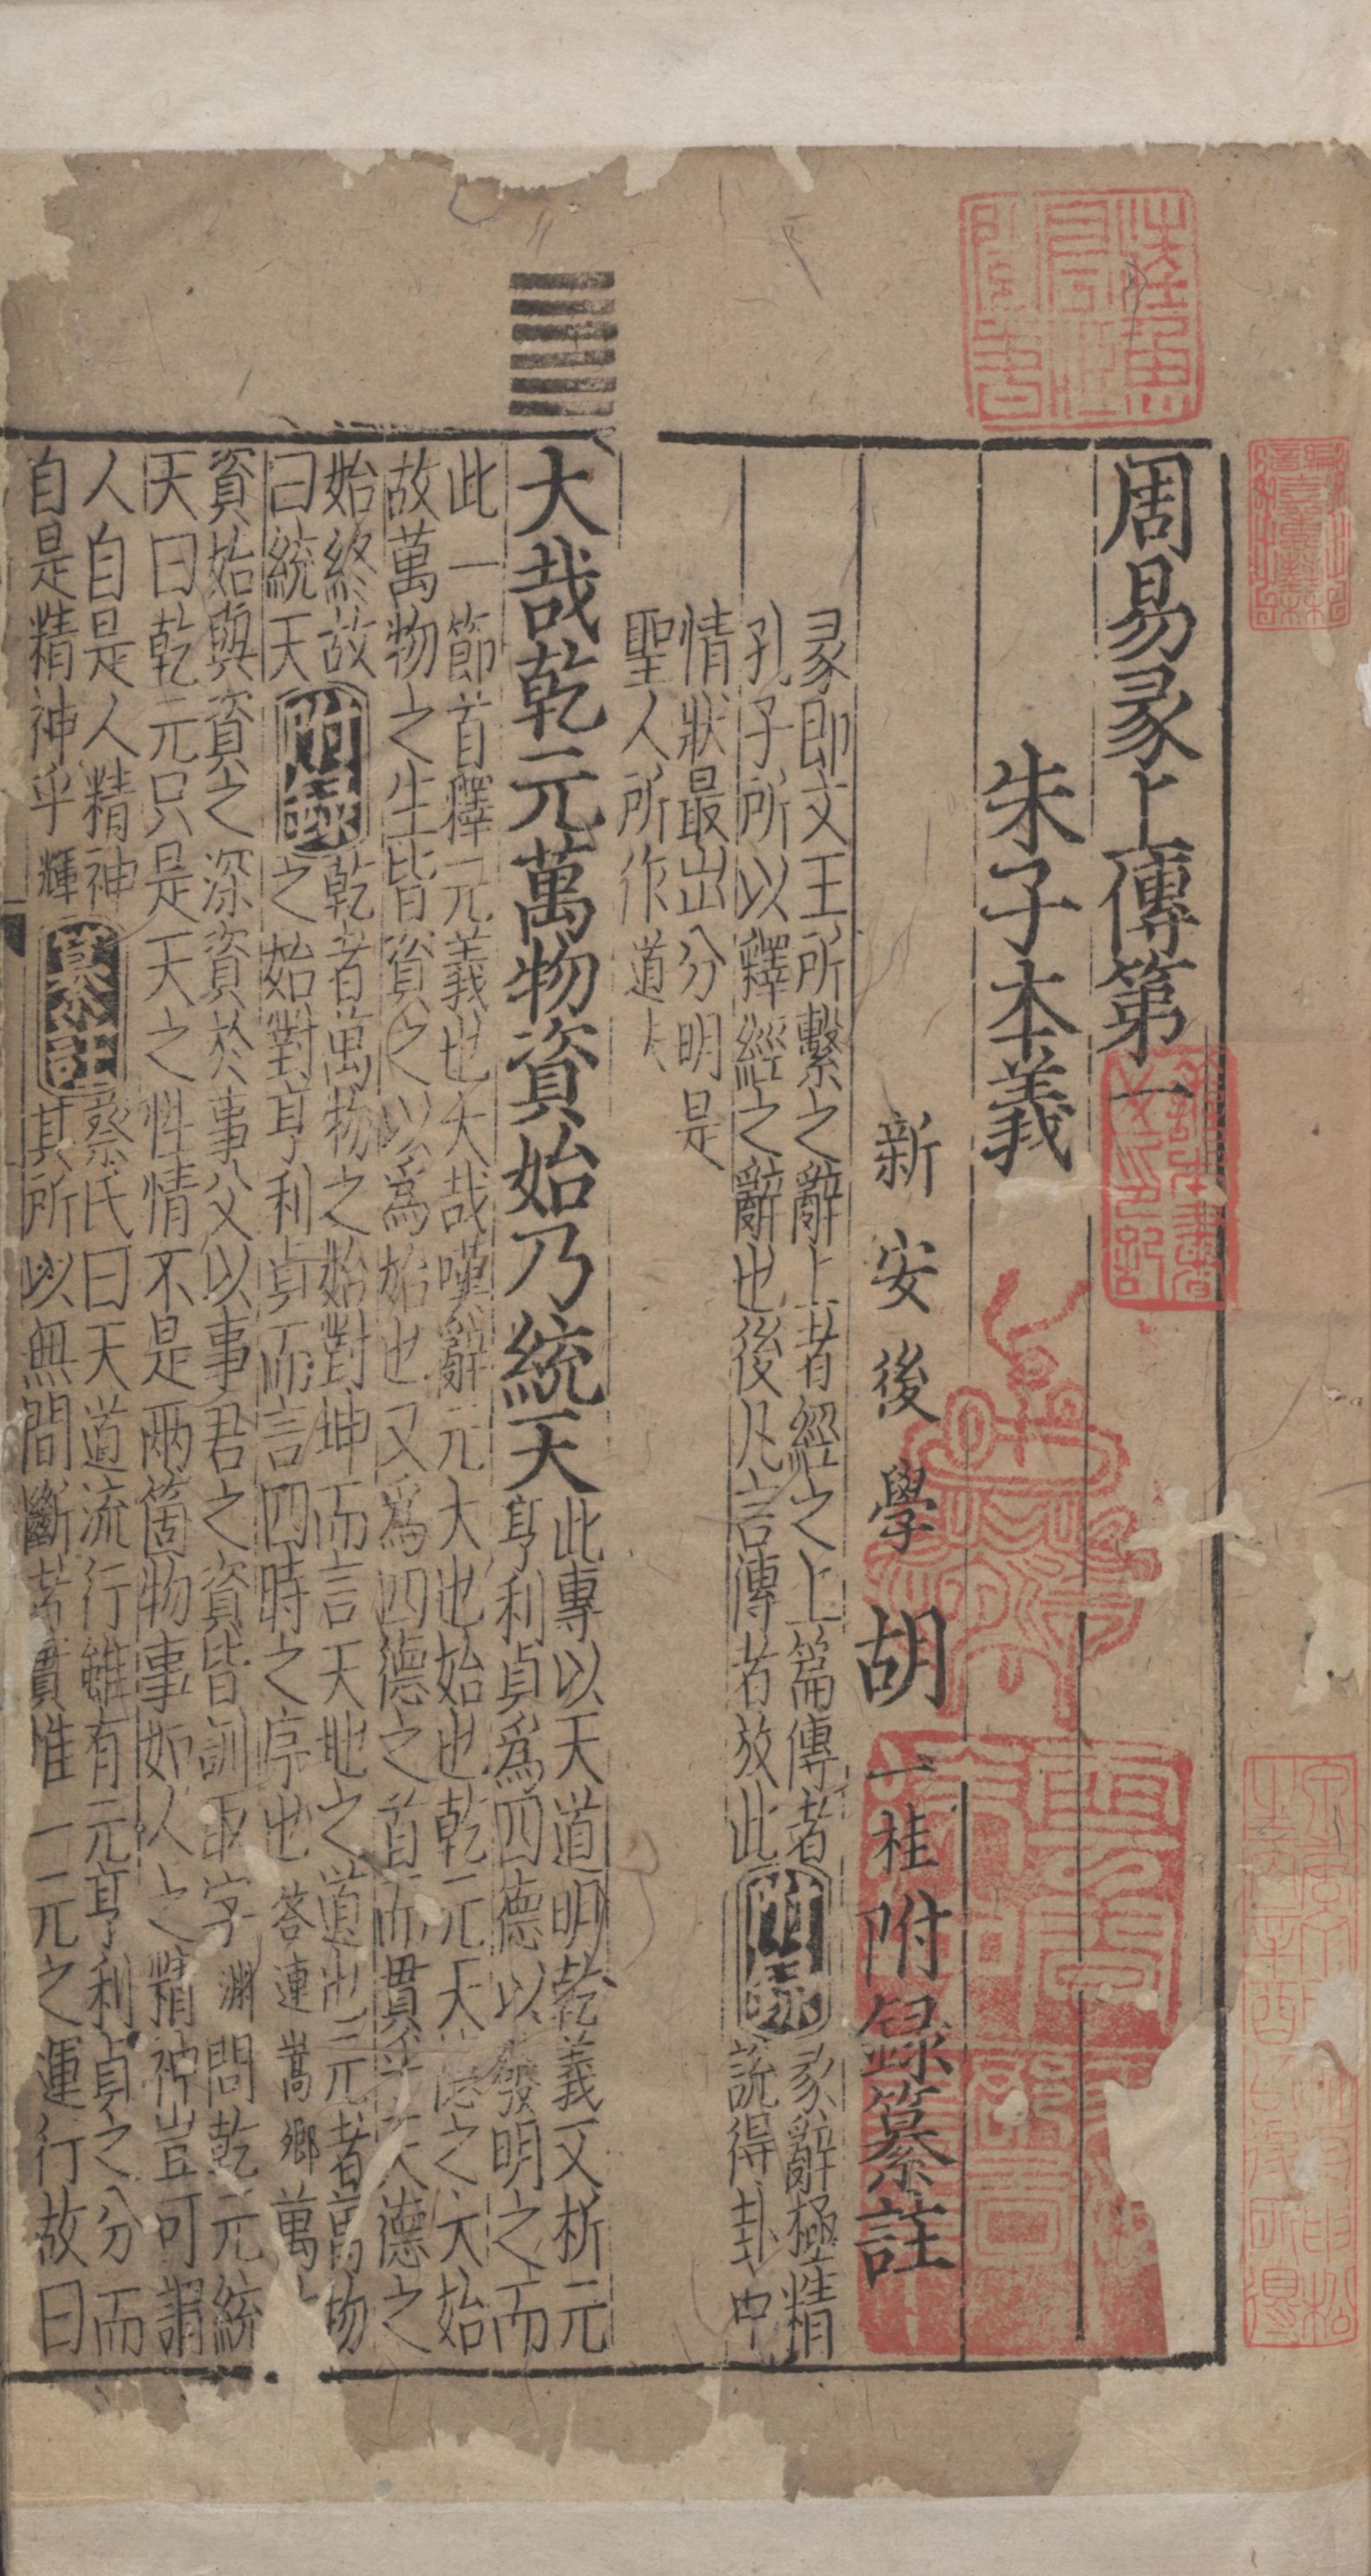 周易彖上傳第一
朱子本義
新安後學胡一桂附録纂註
彖即文王所繫之辭上者經之上篇傳者
孔子所以釋經之辭也後凡言傳者放此
附録
彖辭極精
說得卦中
情狀最出分明是
聖人所作道
大哉乾元萬物資始乃統天
此專以天道明乾義又析元
亨利貞爲四德以發明之而
此一節首釋元義也大哉嘆辭元大也始也乾元天德之大始
故萬物之生皆資之以爲始也又爲四德之首而貫乎天德之
始終故
曰統天
附録
乾者萬物之始對坤而言天地之道也元者萬物
之始對亨利貞而言四時之序也
答連嵩卿
萬
資始與資之深資於事父以事君之資皆訓取字
淵
問乾元統
天曰乾元只是天之性情不是兩箇物事如人之精神豈可謂
人自是人精神
自是精神乎
輝
纂註
蔡氏曰天道流行雖有元亨利貞之分而
其所以無間斷者實惟一元之運行故曰